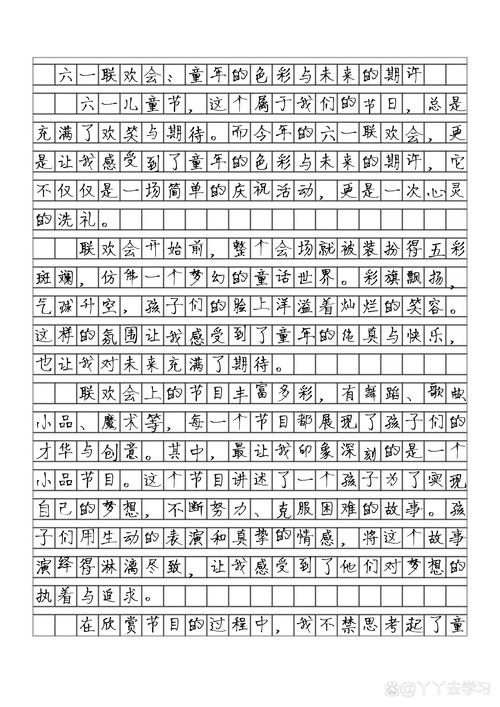 六一联欢会:童年的色彩与未来的期许
六一儿童节，这个属于我们的节日，总是
充满了欢笑与期待。而今年的六一联欢会，更
是让我感受到了童年的色彩与未来的期许，它
不仅仅是一场简单的庆祝活动，更是一次心灵
的洗礼。
联欢会开始前，整个会场就被装扮得五彩
斑斓，仿佛一个梦幻的童话世界。彩旗飘扬，
气球升空，孩子们的脸上洋溢着灿烂的笑容。
这样的氛围让我感受到了童年的纯真与快乐，
也让我对未来充满了期待。
联欢会上的节目丰富多彩，有舞蹈、歌曲
小品、魔术等，每一个节目都展现了孩子们的
才华与创意。其中，最让我印象深刻的是一个
小品节目。这个节目讲述了一个孩子为了实现
自己的梦想，不断努力、克服困难的故事。孩
子们用生动的表演和真挚的情感，将这个故事
演绎得淋漓尽致，让我感受到了他们对梦想的
执着与追求。
在欣赏节目的过程中，我不禁思考起了童
@丫丫去学习